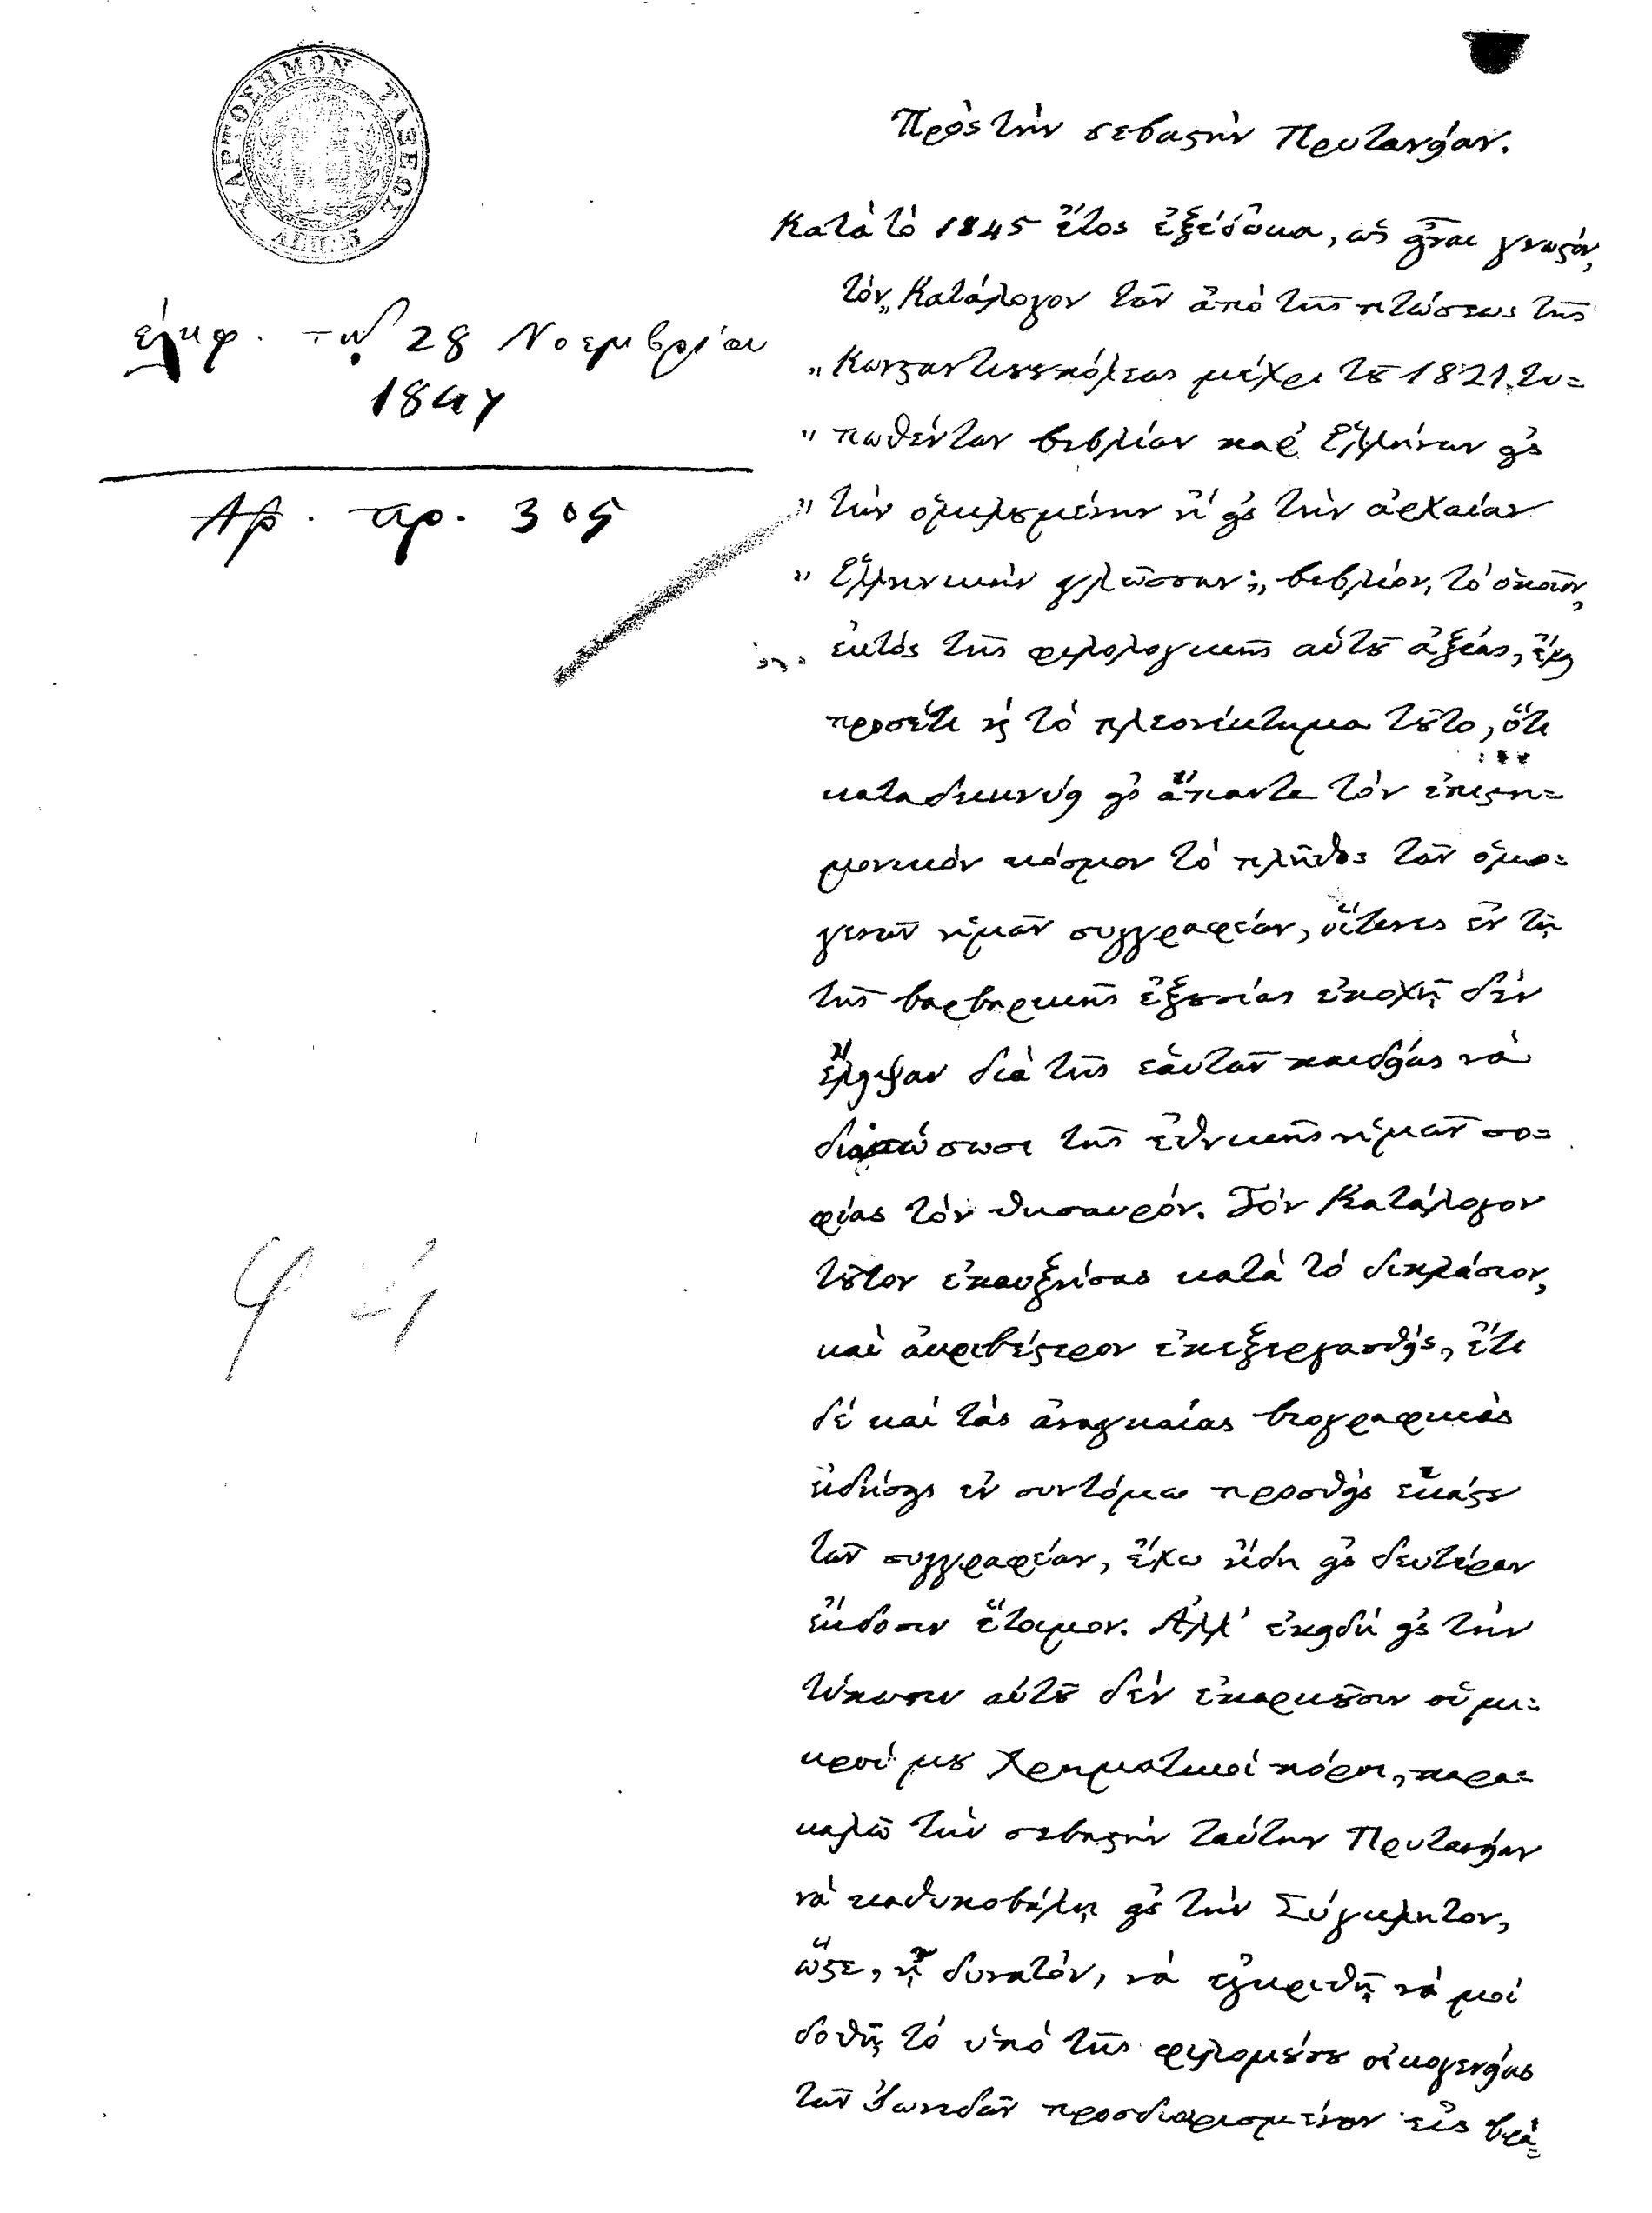 ΧΑΡΤΟΣΗΜΟΝ ΤΑΞΕΩΣ
Πρὸς τὴν σεβαστὴν Πρυτανείαν.
ἐνεφ. τῇ 28 Νοεμβρίου
1847
Αρ. πρ. 305
Κατὰ τὸ 1845 ἔτος ἐξέδωκα, ὡς εἶναι γνωστόν,
τὸν „Κατάλογον τῶν ἀπὸ τῆς πτώσεως τῆς
„Κωνσταντινουπόλεως μέχρι τοῦ 1821 τυ=
„πωθέντων βιβλίων παρ' Ἑλλήνων εἰς
„τὴν ὁμιλουμένην ἢ εἰς τὴν ἀρχαίαν
„Ἑλληνικὴν γλῶσσαν·„ βιβλίον, τὸ ὁποῖον,
ἐκτὸς τῆς φιλολογικῆς αὐτοῦ ἀξίας, ἔχει
προσέτι καὶ τὸ πλεονέκτημα τοῦτο, ὅτι
καταδεικνύει εἰς ἅπαντα τὸν ἐπιστη=
μονικὸν κόσμον τὸ πλῆθος τῶν ὁμο=
γενῶν ἡμῶν συγγραφέων, οἵτινες ἐν τῇ
τῆς βαρβαρικῆς ἐξουσίας ἐποχῇ δὲν
ἔλειψαν διὰ τῆς ἑαυτῶν παιδείας νὰ
διασώσωσι τῆς ἐθνικῆς ἡμῶν σο=
φίας τὸν θησαυρόν. Τὸν Κατάλογον
τοῦτον ἐπαυξήσας κατὰ τὸ διπλάσιον,
καὶ ἀκριβέστερον ἐπεξεργασθεὶς, ἔτι
δὲ καὶ τὰς ἀναγκαίας βιογραφικὰς
εἰδήσεις ἐν συντόμῳ προσθεὶς ἑκάστου
τῶν συγγραφέων, ἔχω ἤδη εἰς δευτέραν
ἔκδοσιν ἕτοιμον. Ἀλλ' ἐπειδὴ εἰς τὴν
τύπωσιν αὐτοῦ δὲν ἐπαρκοῦσιν οἱ μι=
κροί μου χρηματικοὶ πόροι, παρα=
καλῶ τὴν σεβαστὴν ταύτην Πρυτανείαν
νὰ καθυποβάλῃ εἰς τὴν Σύγκλητον,
ὥστε, ᾖ δυνατόν, νὰ ἐγκριθῇ νὰ μοὶ
δοθῇ τὸ ὑπὸ τῆς φιλομούσου οἰκογενείας
τῶν Ἰωνιδῶν προσδιορισμένον εἰς βρα=